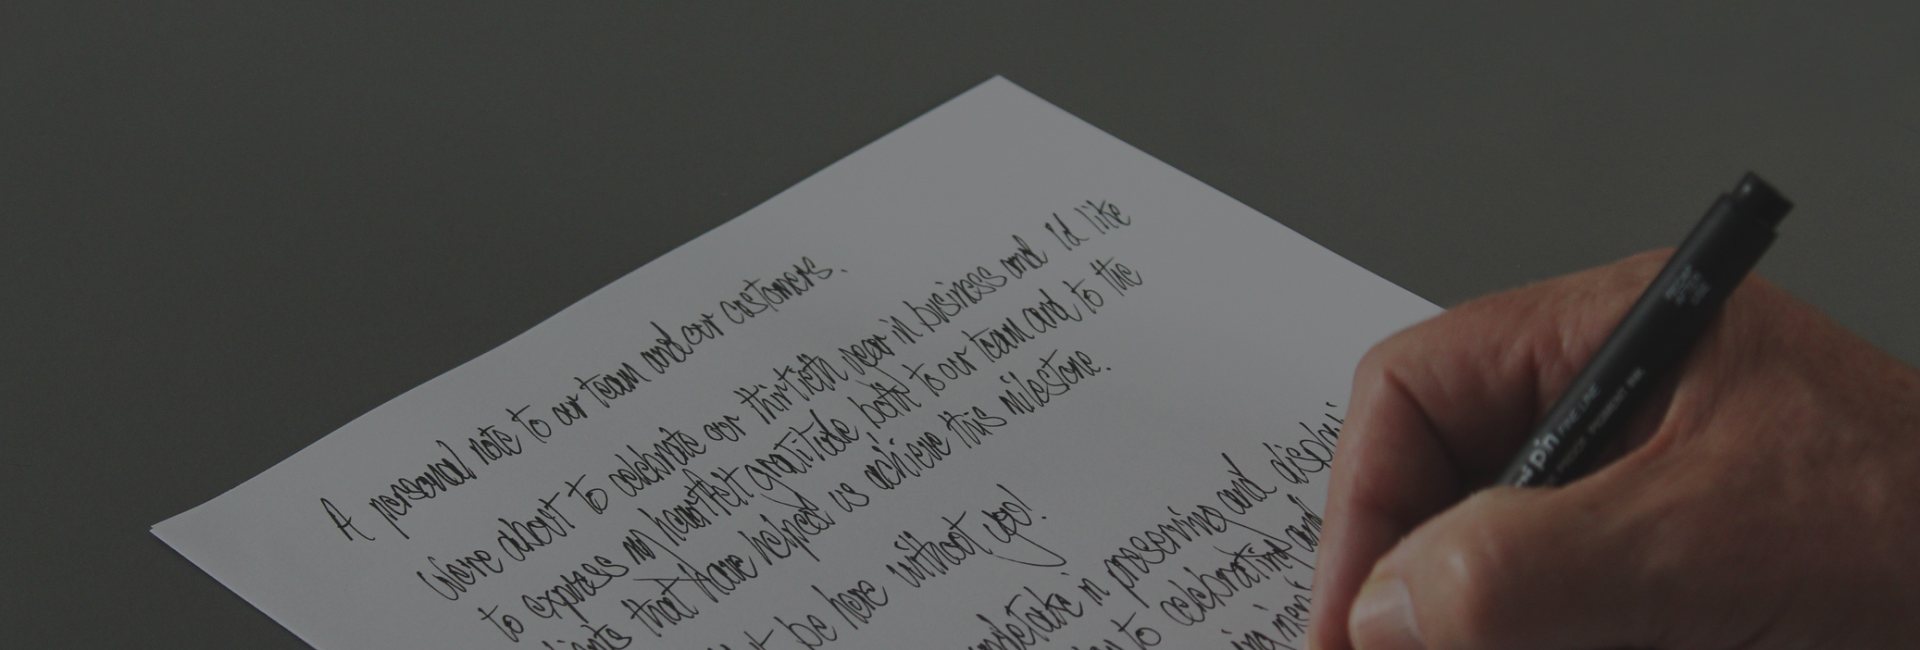 A personal note to our team and our customers.
We're about to celebrate our thirtieth year in business and I'd like
to express my heartfelt gratitude, both to our team and to the
that have helped us achieve this milestone.
be here without you!
in preserving and
to celebrating and
pin FINE LINE